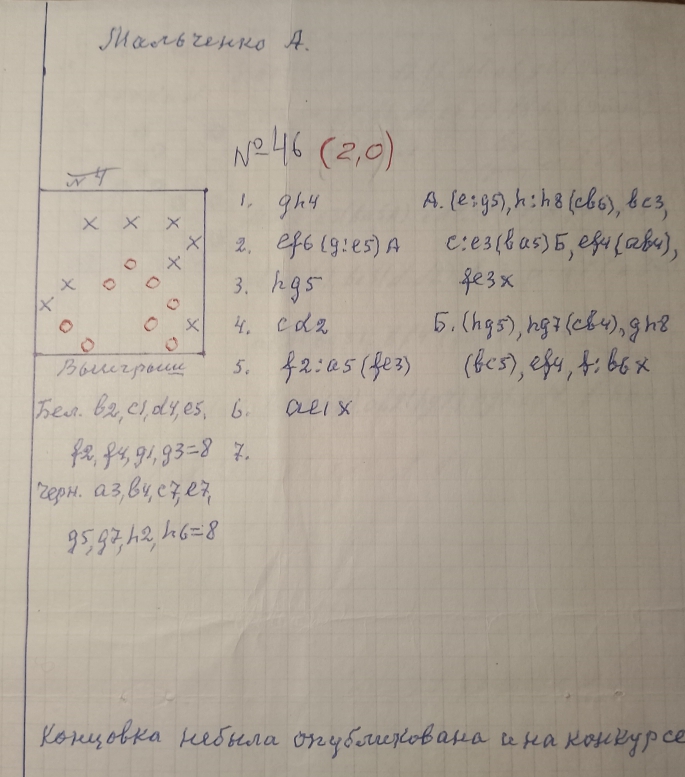 Мальченко А.
№46 (2,0)
№4
1. gh4
2. ef6 (g:e5) A
3. hg5
4. cd2
5. f2:a5 (fe3)
6. ae1 x
7.
А. (e:g5), h:h8 (cb6), bc3,
c:e3 (ba5) Б, ef4 (ab4),
fe3x
Б. (hg5), hg7 (cb4), gh8
(bc5), ef4, f:b6 x
Выигрыш
Бел. b2, c1, d4, e5,
f2, f4, g1, g3=8
Черн. a3, b4, c7, e7,
g5, g7, h2, h6=8
Концовка небыла опубликована и на конкурсе